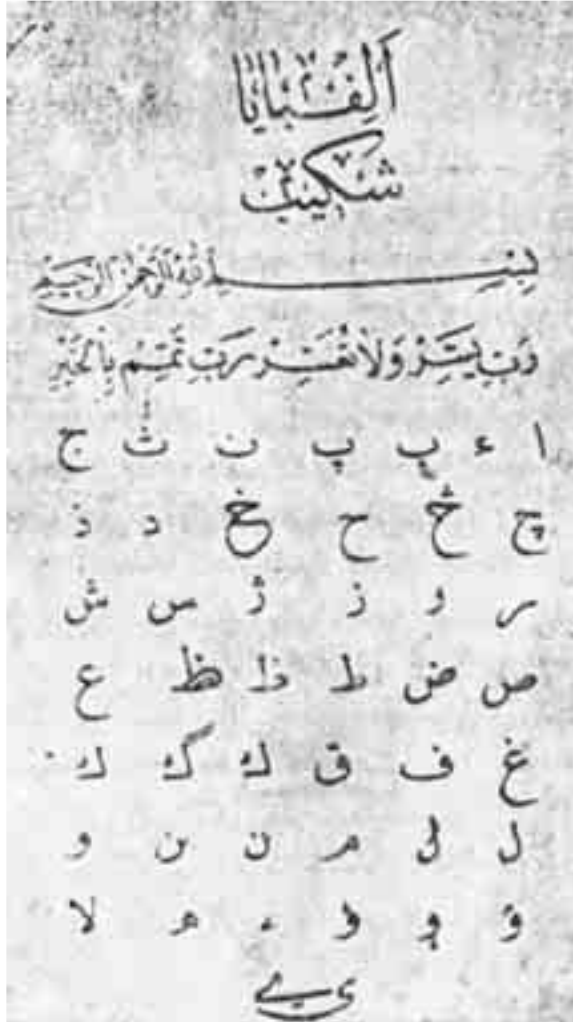 اَلِفْبَايَا
شکیپ
بِسْمِ اللّٰهِ الرَّحْمٰنِ الرَّحِيمِ
رَبِّ يَسِّرْ وَلَا تُعَسِّرْ رَبِّ تَمِّمْ بِالْخَيْرِ
ا ء ب پ ت ث ج
چ ح خ د ذ
ر ز ژ س ش
ص ض ط ظ ع
غ ف ق ك گ ك
ل م ن و
ۇ و ه لا
ى ے